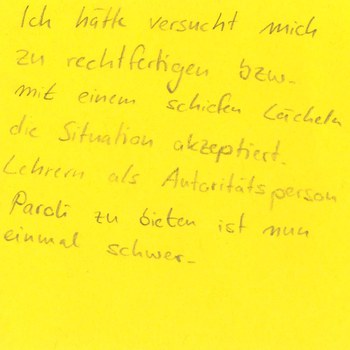 Ich hätte versucht mich
zu rechtfertigen bzw.
mit einem schiefen Lächeln
die Situation akzeptiert.
Lehrern als Autoritätsperson
Paroli zu bieten ist nun
einmal schwer.